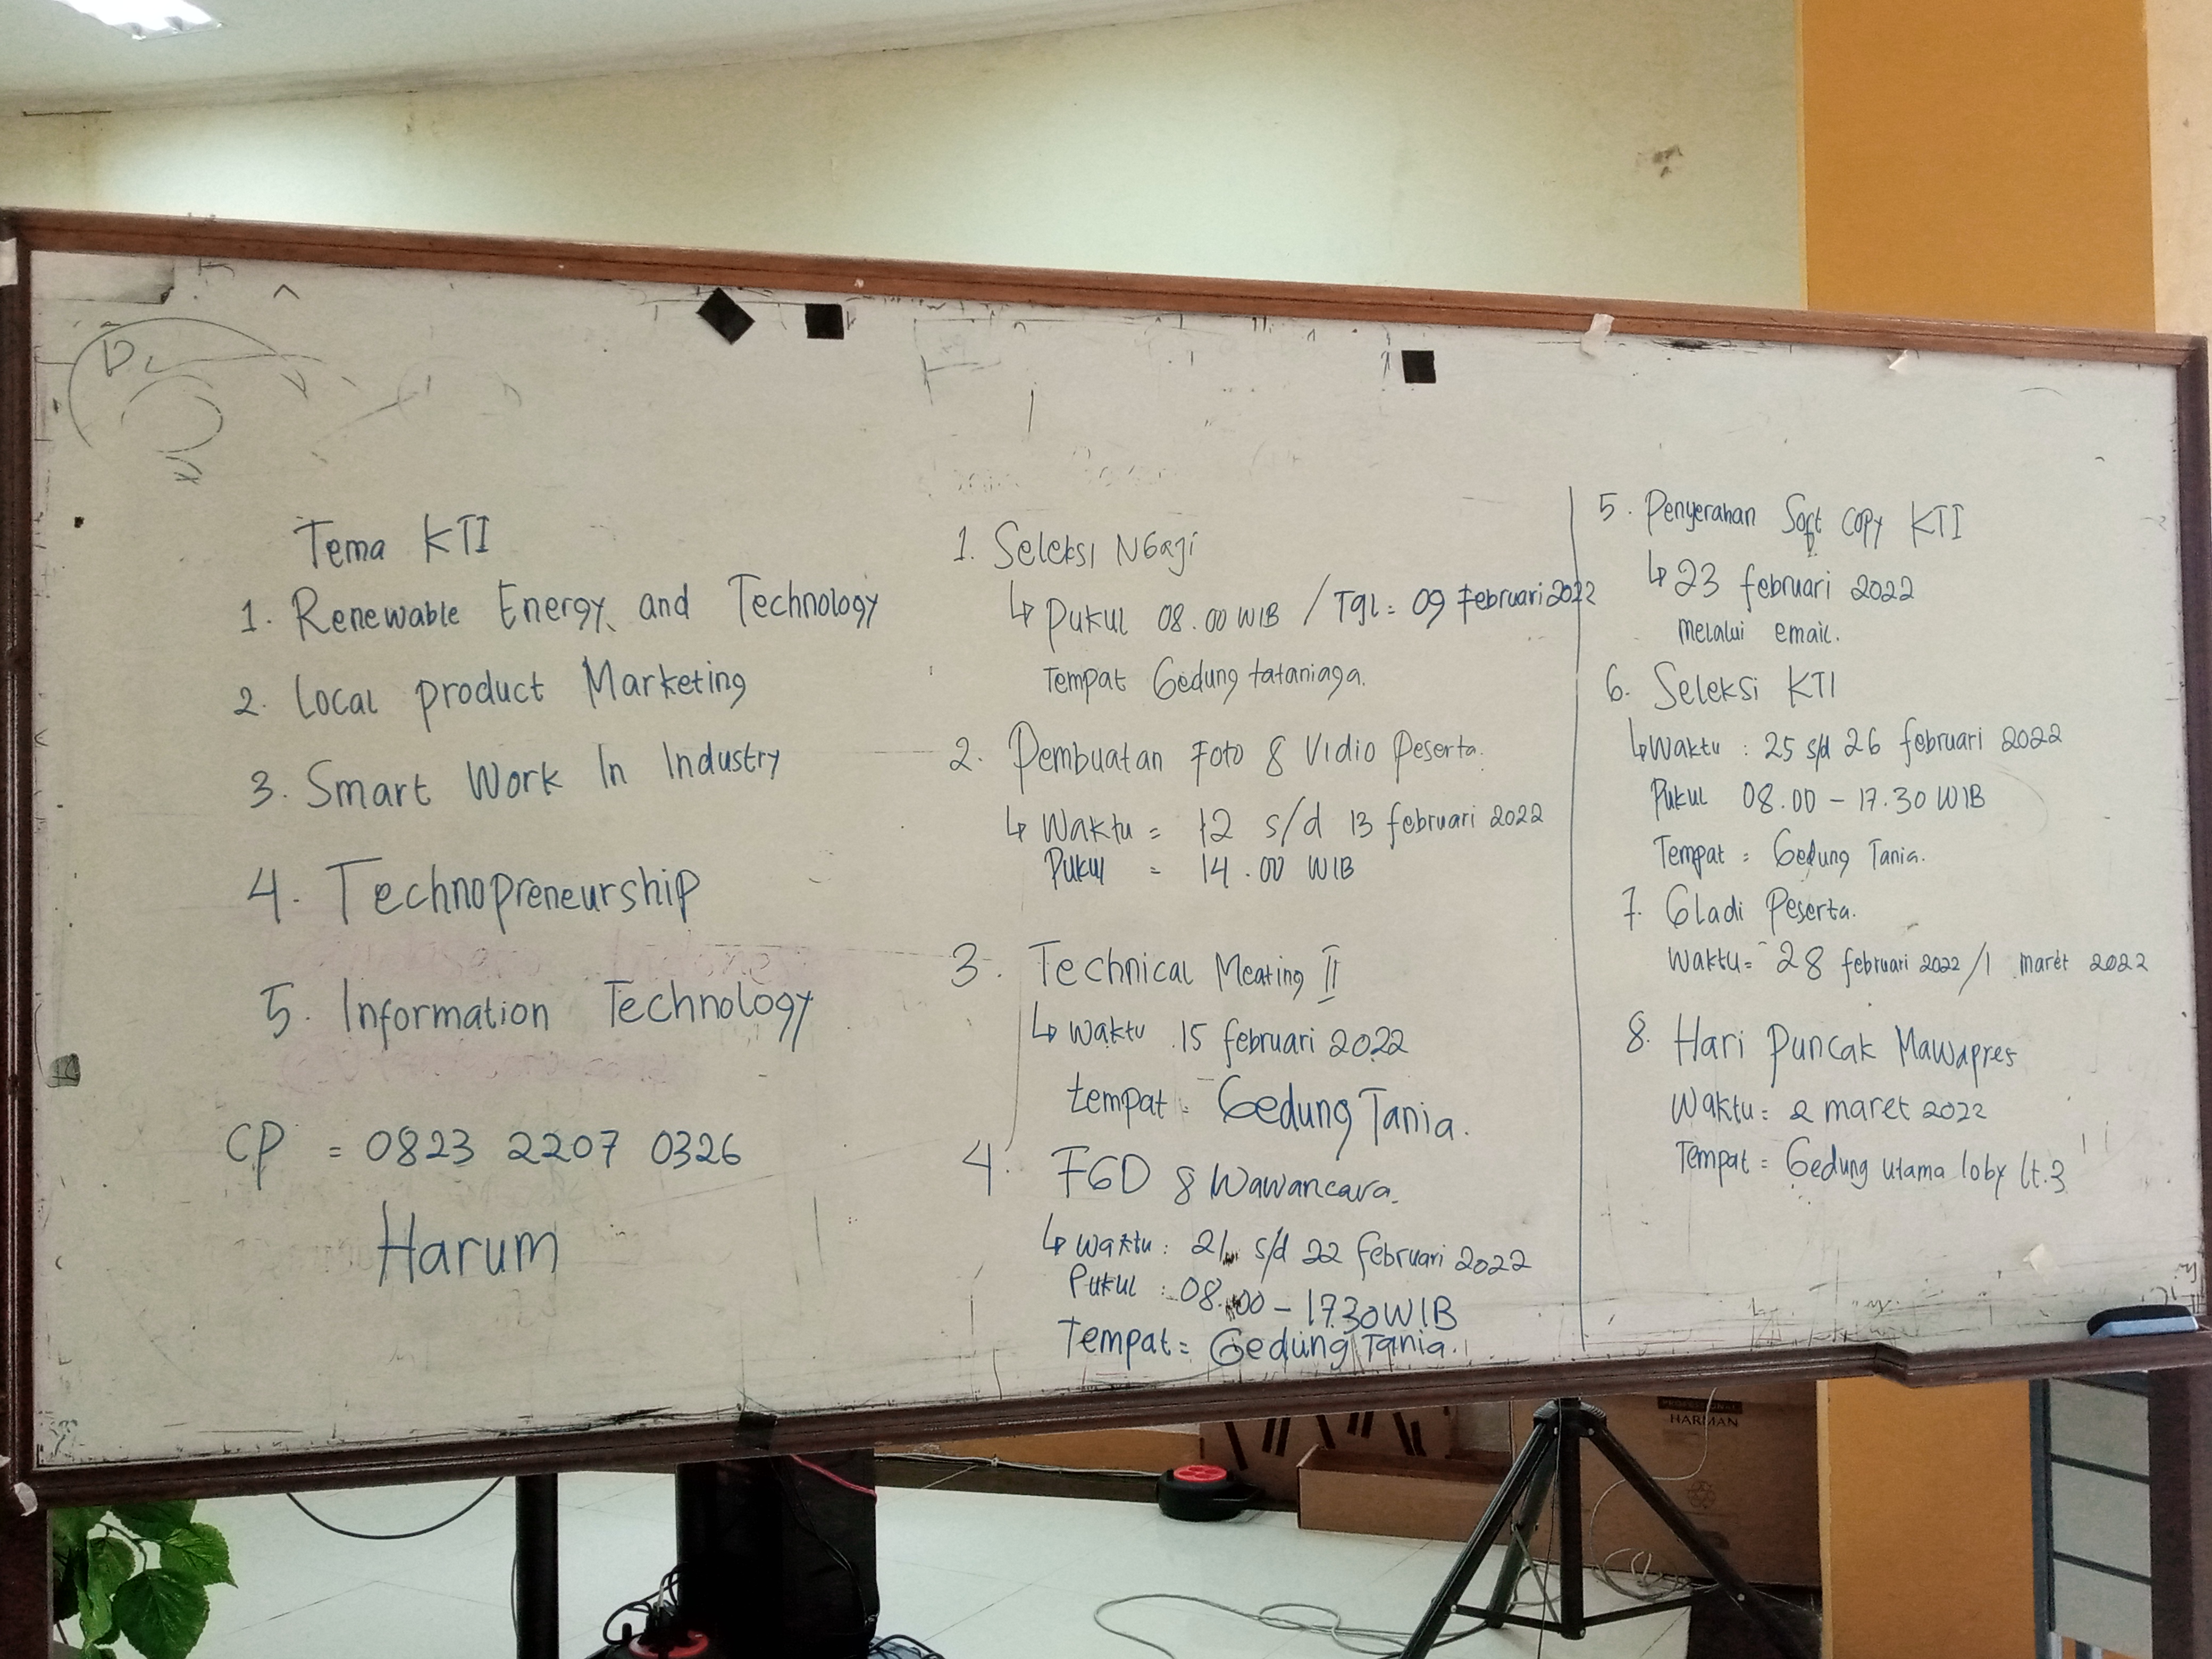 Tema KTI
1. Renewable Energy and Technology
2. Local product Marketing
3. Smart Work In Industry
4. Technopreneurship
5. Information Technology
CP = 0823 2207 0326
Harum
1. Seleksi NGaji
↳ Pukul 08.00 WIB / Tgl = 09 Februari 2022
Tempat Gedung tataniaga.
2. Pembuatan Foto & Vidio Peserta.
↳ Waktu = 12 s/d 13 februari 2022
Pukul = 14.00 WIB
3. Technical Meating II
↳ Waktu 15 februari 2022
tempat = Gedung Tania.
4. FGD & Wawancara.
↳ Waktu : 21 s/d 22 februari 2022
Pukul : 08.00 - 17.30 WIB
Tempat = Gedung Tania.
5. Penyerahan Soft Copy KTI
↳ 23 februari 2022
melalui email.
6. Seleksi KTI
↳ Waktu : 25 s/d 26 februari 2022
Pukul 08.00 - 17.30 WIB
Tempat = Gedung Tania.
7. Gladi Peserta.
Waktu = 28 februari 2022 / 1 maret 2022
8. Hari Puncak Mawapres
Waktu = 2 maret 2022
Tempat = Gedung utama loby lt.3
PROFESSIONAL
HARMAN